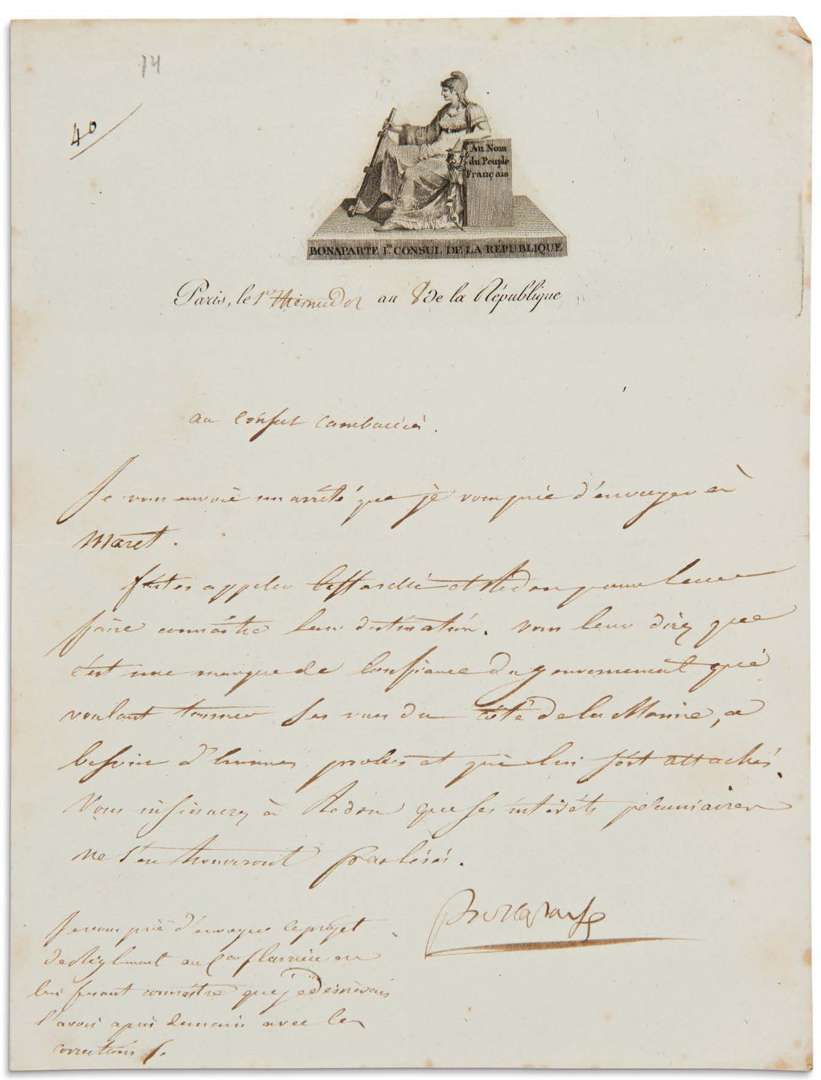 74
40
Au Nom
du Peuple
Français
BONAPARTE 1er. CONSUL DE LA RÉPUBLIQUE
Paris, le 1er thermidor an 8 de la République
au consul cambacérès.
Je vous envoie un arrêté que je vous prie d'envoyer à
Maret.
faites appeler et Redon pour leur
faire connaitre leur destination. vous leur direz que
c'est une marque de confiance du gouvernement qui
voulant tourner ses vues du côté de la Marine, a
besoin d'hommes probes et qui lui sont attachés.
Vous insinuerez à Redon que ses intérêts pécuniaires
ne s'en trouveront pas lésés.
Bonaparte
Je vous prie d'envoyer le projet
de Reglement au en
lui faisant connaitre que je désirerais
l'avoir après demain avec les
corrections